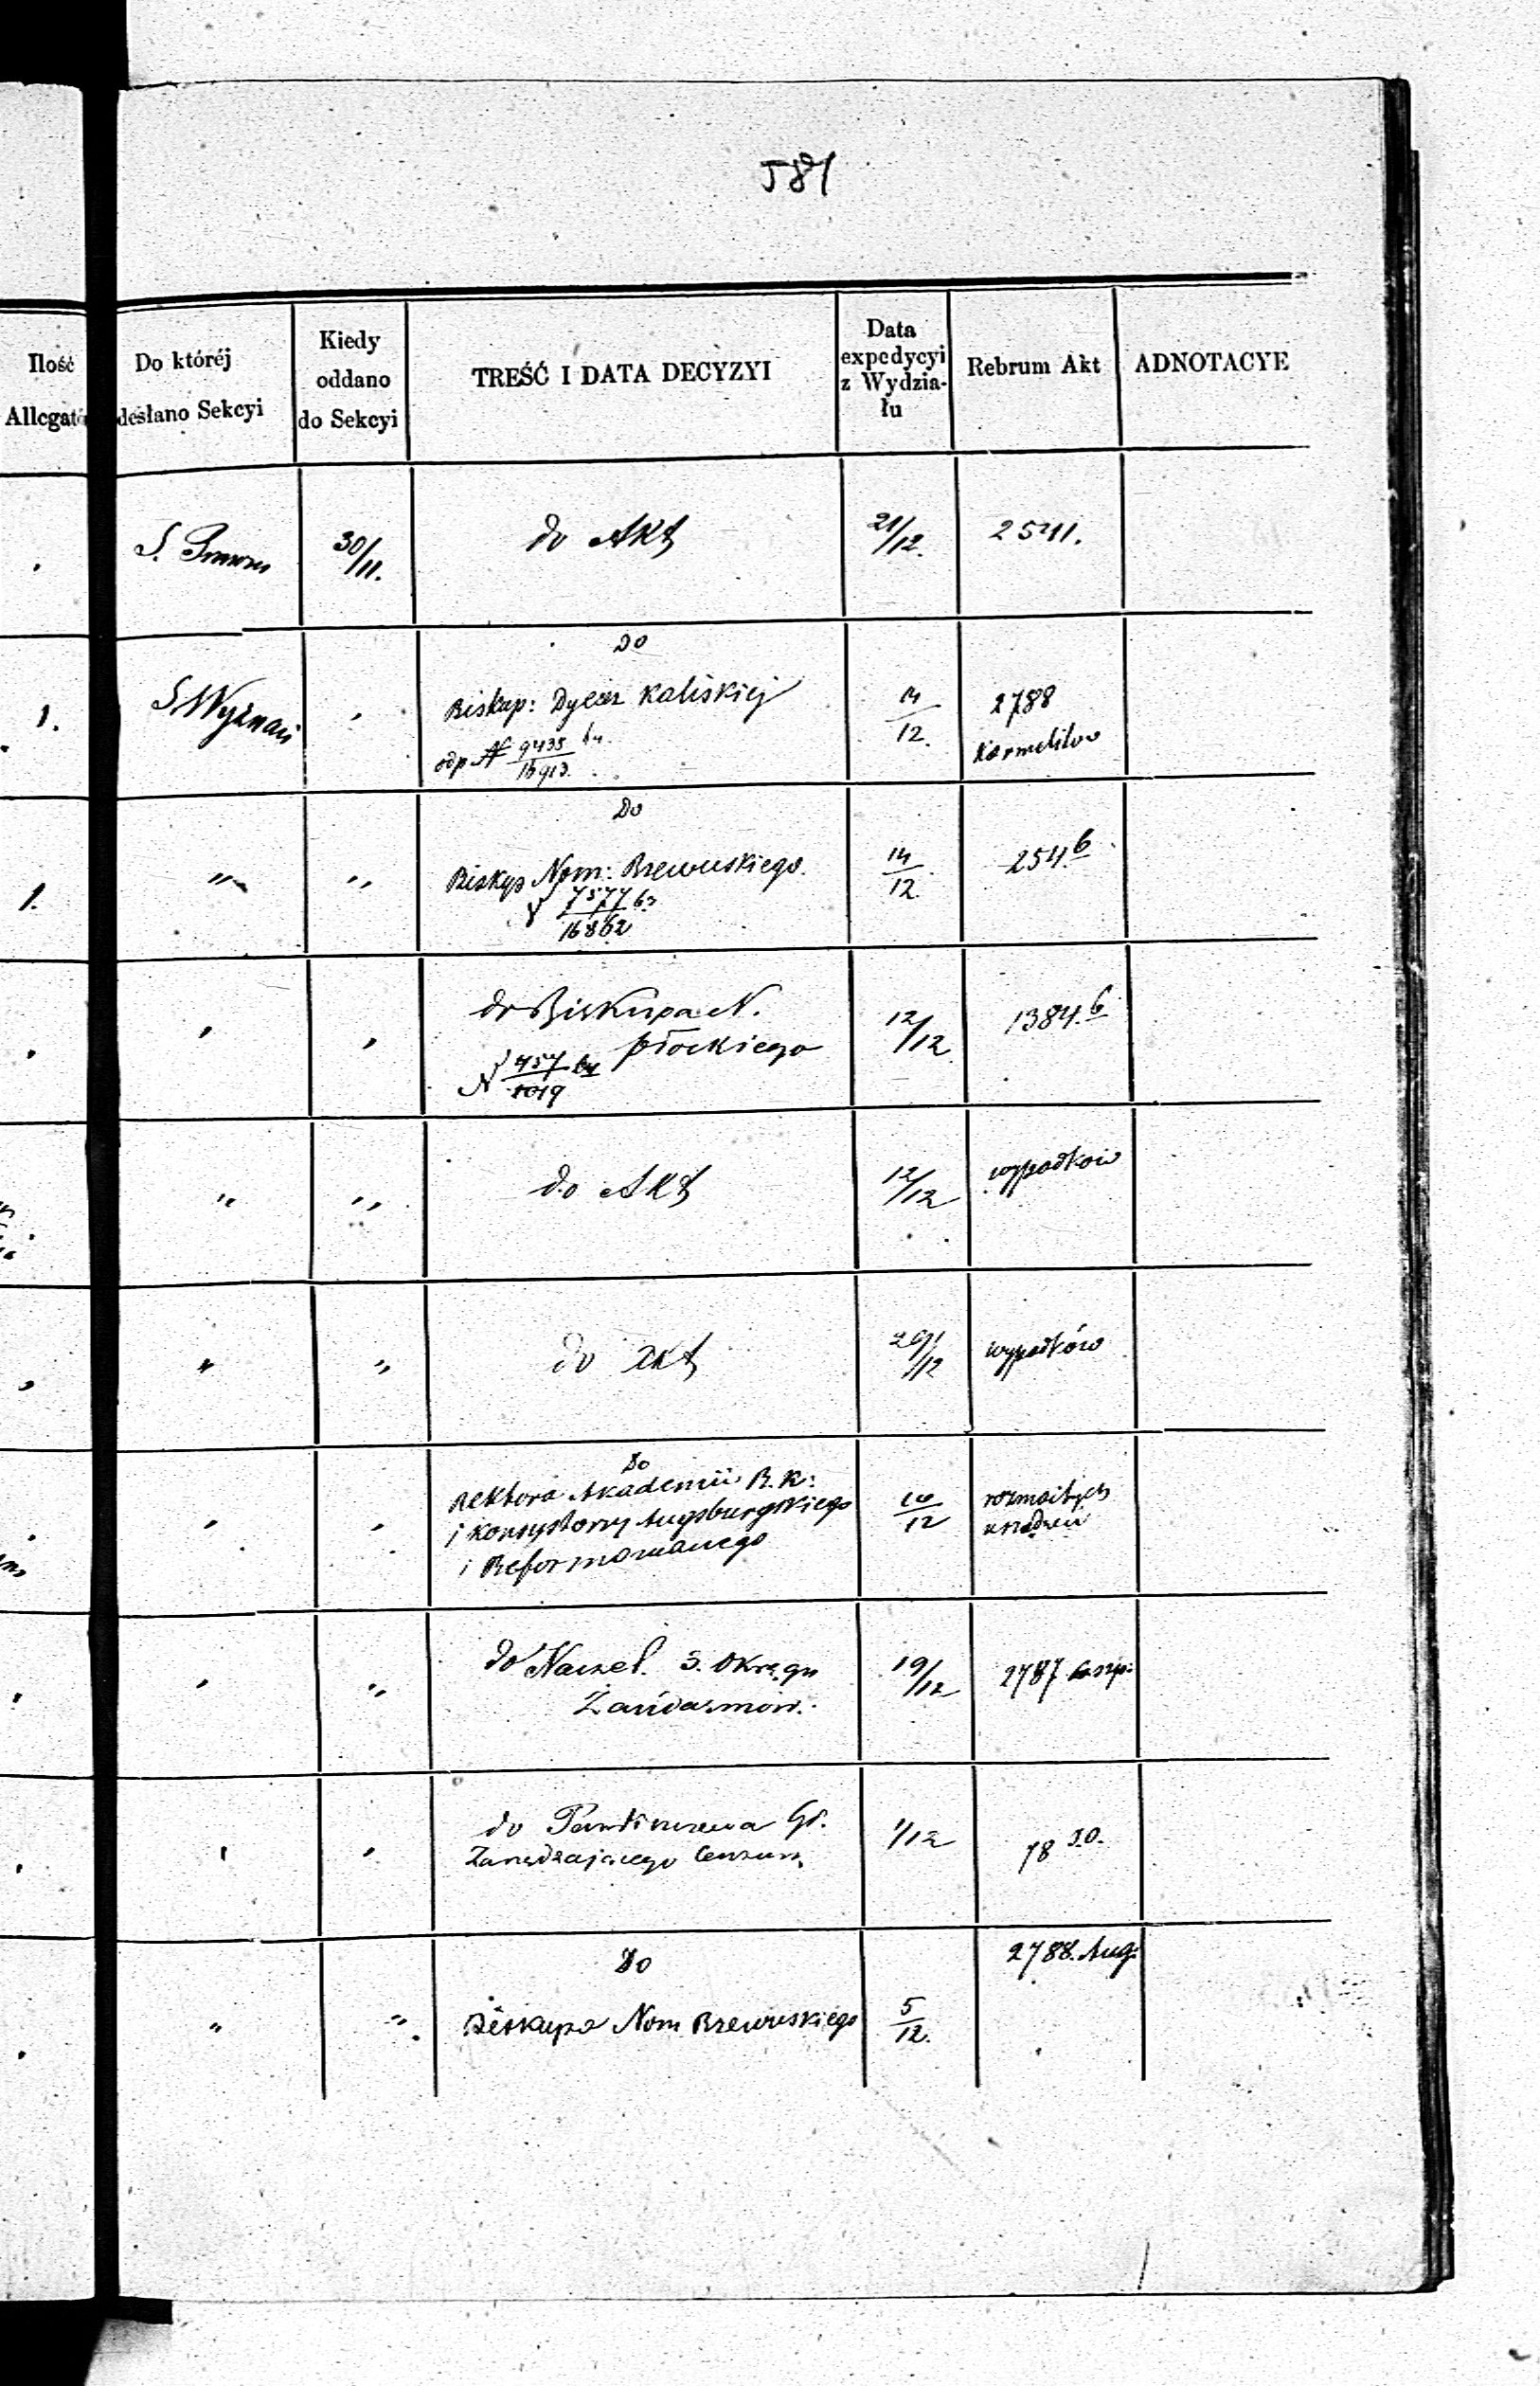 581
Ilość Allegató
Do któréj desłano Sekcyi
Kiedy oddano do Sekcyi
TREŚĆ I DATA DECYZYI
Data expedycyi z Wydzia- łu
Rebrum Akt
ADNOTACYE
S. 30/11. do Akt 21/12. 2541.
Do
1. S Wyznań " Biskup: Dyecez Kaliskiej 14/12. 2788
odp N 9435/16913. Karmelitów
Do
1. " " Biskup Nom: Rzewuskiego. 14/12. 254.6
7577/16862
" " do Biskupa N. 12/12 1384.6
Płockiego
N 457/1019
" " do Akt 12/12 wypadków
" " do Akt 29/12 wypadków
Do
" " Rektora Akademii R. K: 10/12 rozmaitych
i Konsystorzy Augsburgskiego urządzeń
i Reformowanego
" " do Naczel. 3. Okręgu 19/12 2787
Żandarmów.
" " do Gł. 1/12 78
Zarządzającego Cenzurą
Do 2788. Aug:
" " Biskupa Nom Rzewuskiego 5/12.